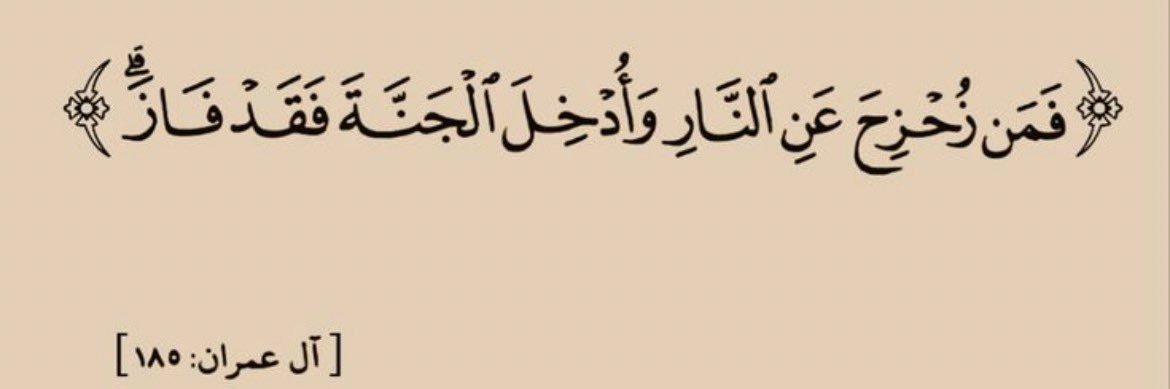 ﴿فَمَن زُحْزِحَ عَنِ ٱلنَّارِ وَأُدْخِلَ ٱلْجَنَّةَ فَقَدْ فَازَۗ﴾
[آل عمران: ١٨٥]